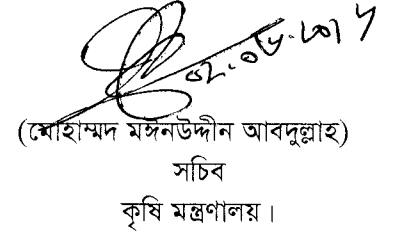 ০২.০৮.২০১৮
(মোহাম্মদ মঈনউদ্দীন আবদুল্লাহ)
সচিব
কৃষি মন্ত্রণালয়।